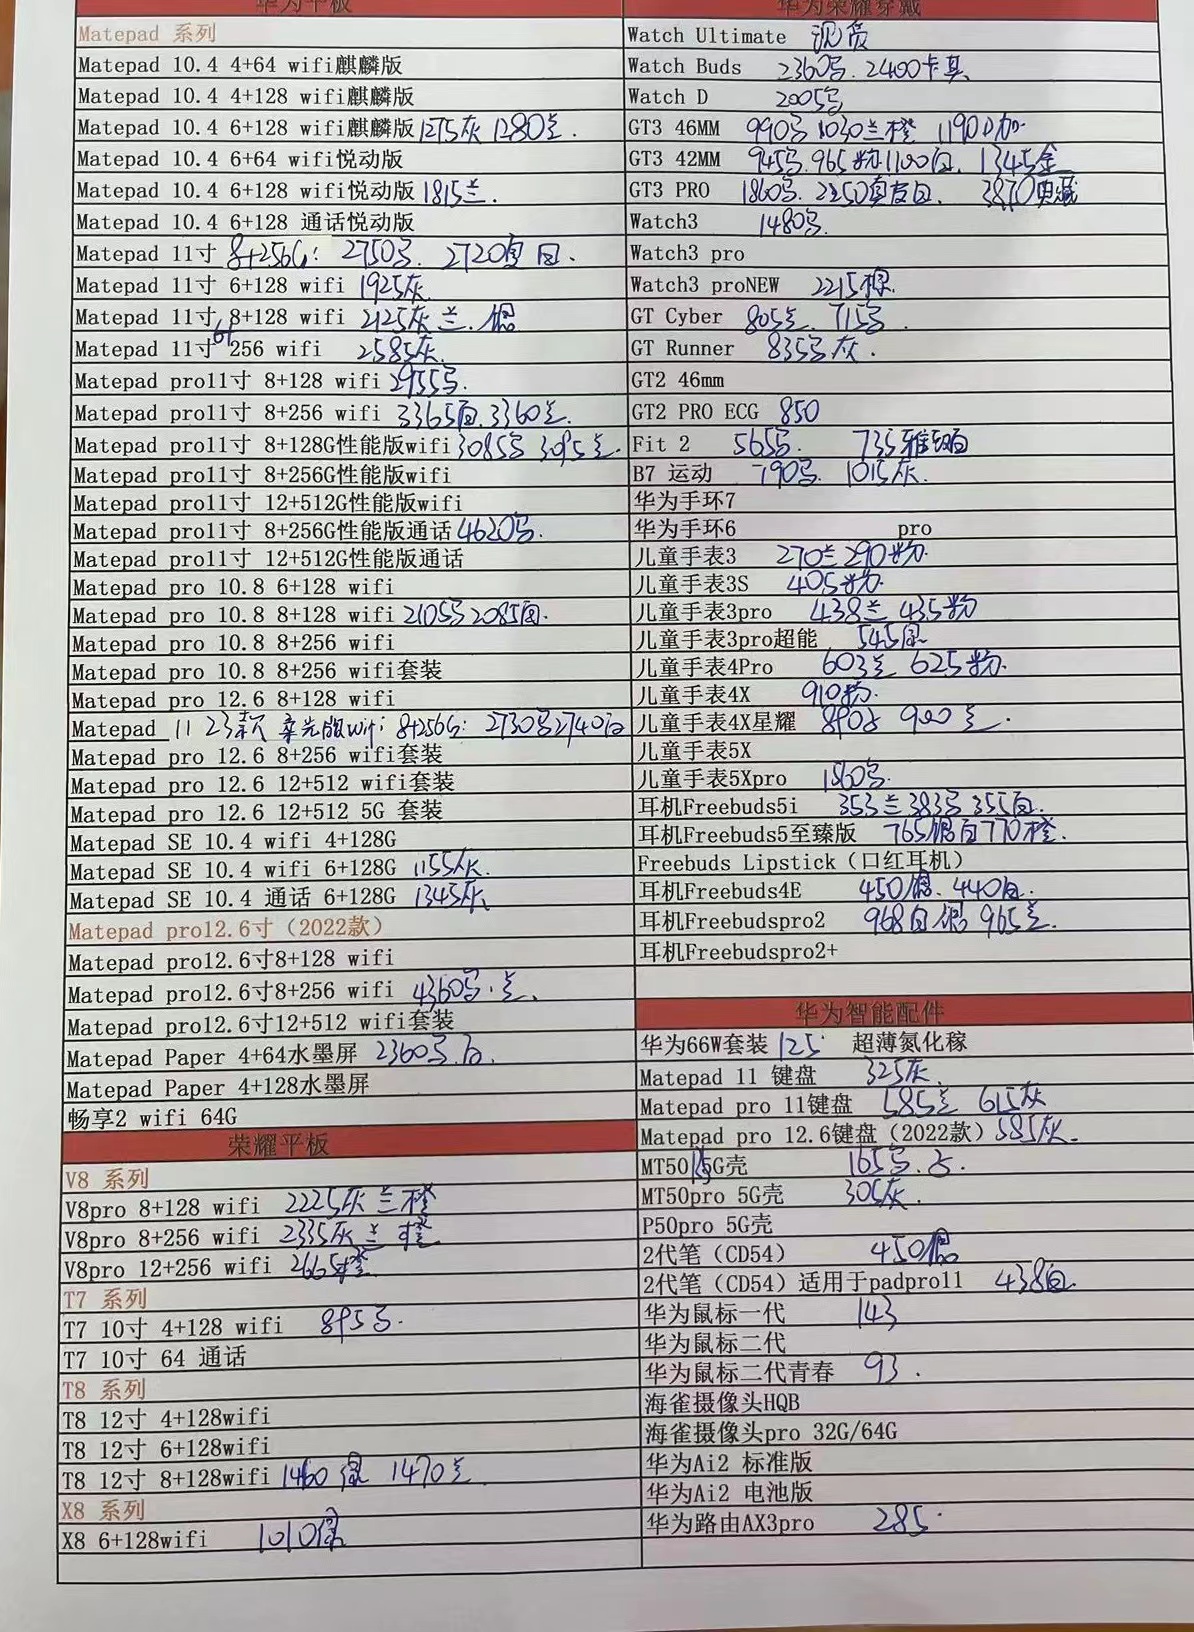 华为平板
Matepad 系列
Matepad 10.4 4+64 wifi麒麟版
Matepad 10.4 4+128 wifi麒麟版
Matepad 10.4 6+128 wifi麒麟版 1275灰 1280兰.
Matepad 10.4 6+64 wifi悦动版
Matepad 10.4 6+128 wifi悦动版 1815兰.
Matepad 10.4 6+128 通话悦动版
Matepad 11寸 8+256G: 2750 2720
Matepad 11寸 6+128 wifi 1925灰
Matepad 11寸 8+128 wifi 2125灰 兰.银
Matepad 11寸 6+ 256 wifi 2585灰.
Matepad pro11寸 8+128 wifi 2955
Matepad pro11寸 8+256 wifi 3365白. 3360兰.
Matepad pro11寸 8+128G性能版wifi 3085 3095兰.
Matepad pro11寸 8+256G性能版wifi
Matepad pro11寸 12+512G性能版wifi
Matepad pro11寸 8+256G性能版通话 4620
Matepad pro11寸 12+512G性能版通话
Matepad pro 10.8 6+128 wifi
Matepad pro 10.8 8+128 wifi 2105 2085白.
Matepad pro 10.8 8+256 wifi
Matepad pro 10.8 8+256 wifi套装
Matepad pro 12.6 8+128 wifi
Matepad 11 23款 柔光版wifi 8+256G: 2730 2740白
Matepad pro 12.6 8+256 wifi套装
Matepad pro 12.6 12+512 wifi套装
Matepad pro 12.6 12+512 5G 套装
Matepad SE 10.4 wifi 4+128G
Matepad SE 10.4 wifi 6+128G 1155灰.
Matepad SE 10.4 通话 6+128G 1345灰
Matepad pro12.6寸（2022款）
Matepad pro12.6寸8+128 wifi
Matepad pro12.6寸8+256 wifi 4360 .兰.
Matepad pro12.6寸12+512 wifi套装
Matepad Paper 4+64水墨屏 2360
Matepad Paper 4+128水墨屏
畅享2 wifi 64G
荣耀平板
V8 系列
V8pro 8+128 wifi 2225灰 兰 橙
V8pro 8+256 wifi 2335灰 兰 橙
V8pro 12+256 wifi 2665橙
T7 系列
T7 10寸 4+128 wifi 895
T7 10寸 64 通话
T8 系列
T8 12寸 4+128wifi
T8 12寸 6+128wifi
T8 12寸 8+128wifi 1460 1470兰
X8 系列
X8 6+128wifi 1010
华为荣耀穿戴
Watch Ultimate 现货
Watch Buds 2360 . 2400卡其
Watch D 2005
GT3 46MM 990 1030兰橙 1190
GT3 42MM 945 .965粉 1100白. 1345金
GT3 PRO 1860 . 2250 3870典藏
Watch3 1480
Watch3 pro
Watch3 proNEW 2215棕.
GT Cyber 805兰. 715
GT Runner 835 灰.
GT2 46mm
GT2 PRO ECG 850
Fit 2 565 . 735雅白
B7 运动 790 1015灰.
华为手环7
华为手环6 pro
儿童手表3 270兰 290粉.
儿童手表3S 405粉.
儿童手表3pro 438兰 435粉
儿童手表3pro超能 545
儿童手表4Pro 603兰 625粉.
儿童手表4X 910粉.
儿童手表4X星耀 890 900兰.
儿童手表5X
儿童手表5Xpro 1560
耳机Freebuds5i 353兰 383 355白.
耳机Freebuds5至臻版 765银白 770橙.
Freebuds Lipstick（口红耳机）
耳机Freebuds4E 450银. 440白.
耳机Freebudspro2 968白 银 965兰.
耳机Freebudspro2+
华为智能配件
华为66W套装 125 超薄氮化稼
Matepad 11 键盘 325灰
Matepad pro 11键盘 585兰 615灰
Matepad pro 12.6键盘（2022款）585灰.
MT50 5G壳 165
MT50pro 5G壳 305灰.
P50pro 5G壳
2代笔（CD54） 450银
2代笔（CD54）适用于padpro11 438白.
华为鼠标一代 143
华为鼠标二代
华为鼠标二代青春 93.
海雀摄像头HQB
海雀摄像头pro 32G/64G
华为Ai2 标准版
华为Ai2 电池版
华为路由AX3pro 285.